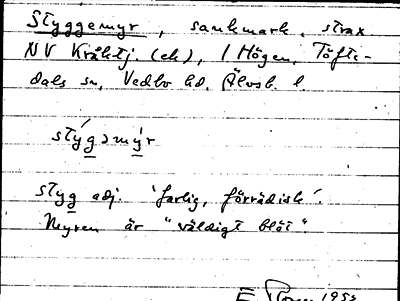 Styggemyr, sankmark, strax
NV Kråktj. (ek), I Högen, Töfte-
dals sn, Vedbo hd. Älvsb. l.
stýgɔmy̌r
styg adj. 'farlig, förrädisk'.
Myren är "väldigt blöt"
E. 1953